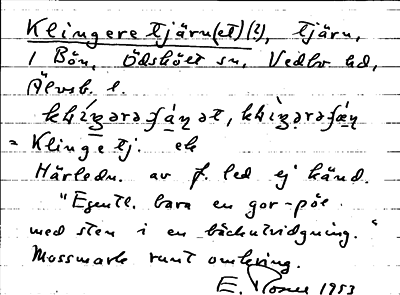 Klingere tjärn(et) (?), tjärn,
i Bön, Ödskölt sn, Vedbo hd,
Älvsb. l.
= Klinge tj. ek
Härledn. av f. led ej känd.
"Egentl. bara en gor-pöl
med sten i en bäckutvidgning."
Mossmark runt omkring.
E. 1953